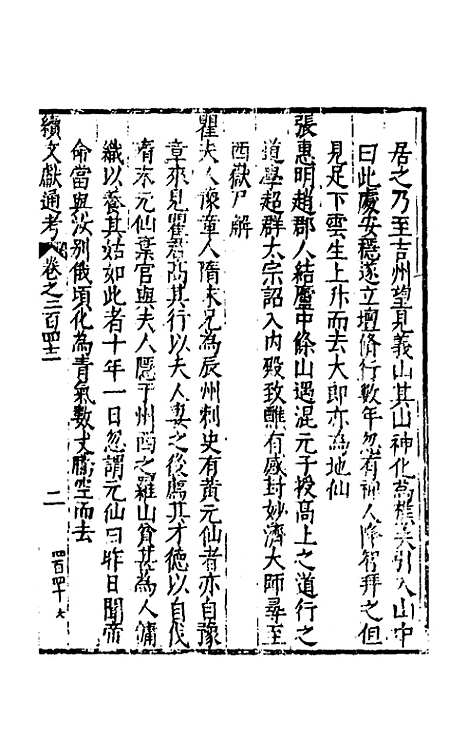 居之乃至吉州望見義山其山神化為樵夫引入山中
曰此處安穩遂立壇脩行數年忽有神人降智拜之但
見足下雲生上升而去大郎亦為地仙
張惠明趙郡人結廬中條山遇混元子授高上之道行之
道學超群太宗詔入內殿致醮有感封妙濟大師尋至
西嶽尸解
瞿夫人豫章人隋末兄為辰州刺史有黃元仙者亦自豫
章來見瞿君高其行以夫人妻之後薦其才德以自代
隋末元仙棄官與夫人隱于州西之羅山貧甚為人傭
織以養其姑如此者十年一日忽謂元仙曰昨日聞帝
命當與汝別俄頃化為青氣數丈騰空而去
續文獻通考 卷之二百四十三 二 四百四十六